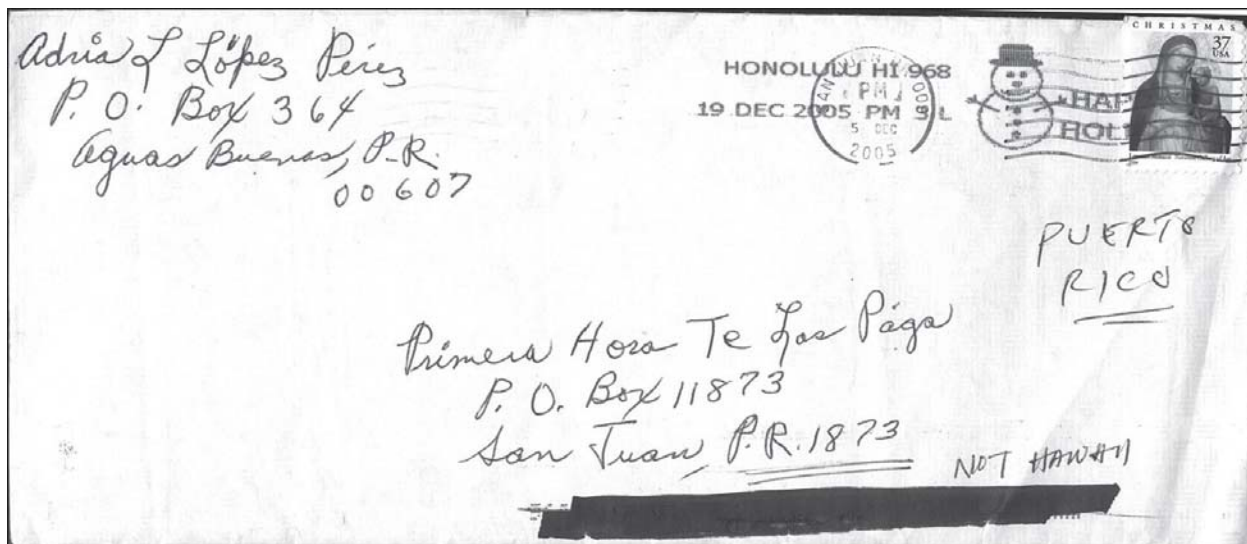 Adria L López Pérez
P. O. Box 364
Aguas Buenas, P.R.
00607
HONOLULU HI 968
19 DEC 2005 PM 3 L
SAN JUAN
PM
5 DEC
2005
HAP
HOLI
CHRISTMAS
37
USA
PUERTO
RICO
Primera Hora Te Las Paga
P. O. Box 11873
San Juan, P.R. 1873
NOT HAWAII